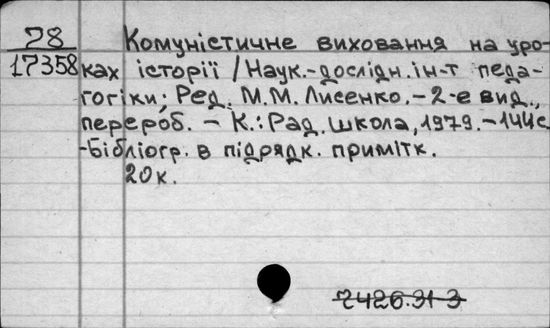 78 Комуністичне виховання на уро-
17358 ках історії / Наук.-дослідн. ін-т педа-
гогіки; Ред. М.М. Лисенко. – 2-е вид.,
перероб. – К.: Рад. школа, 1979. – 144с.
-Бібліогр. в підрядк. примітк.
20к.
2426.31-3